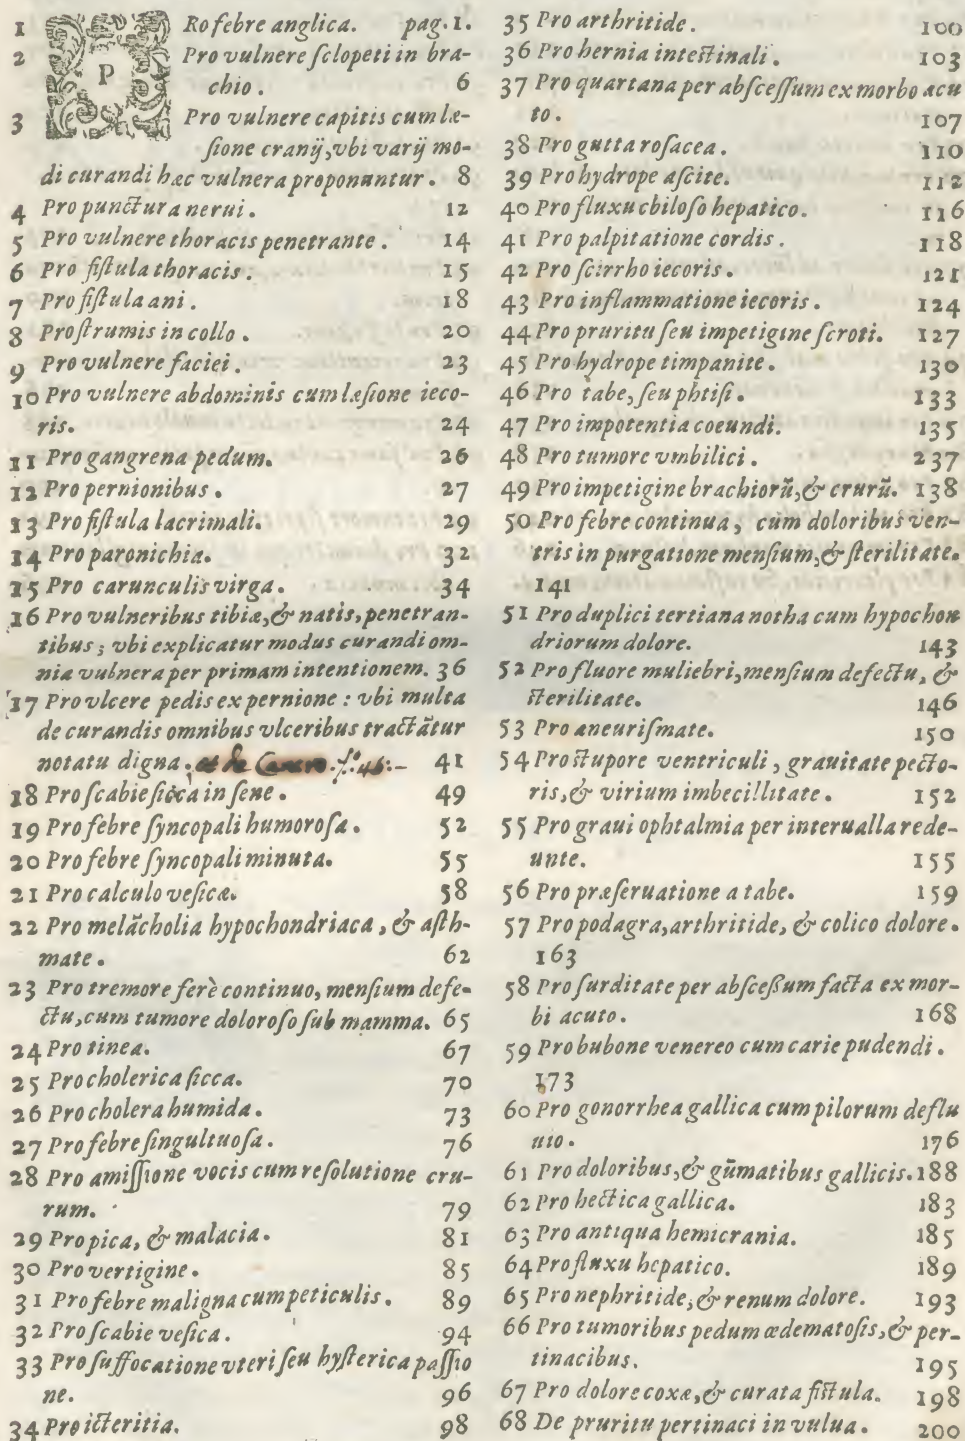 1 PRo febre anglica. pag. 1.
2 Pro vulnere ſclopeti in bra-
chio. 6
3 Pro vulnere capitis cum læ-
ſione cranij, vbi varij mo-
di curandi hæc vulnera proponuntur. 8
4 Pro punctura nerui. 12
5 Pro vulnere thoracis penetrante. 14
6 Pro fiſtula thoracis. 15
7 Pro fiſtula ani. 18
8 Pro ſtrumis in collo. 20
9 Pro vulnere faciei. 23
10 Pro vulnere abdominis cum læſione ieco-
ris. 24
11 Pro gangrena pedum. 26
12 Pro pernionibus. 27
13 Pro fiſtula lacrimali. 29
14 Pro paronichia. 32
15 Pro carunculis virga. 34
16 Pro vulneribus tibiæ, & natis, penetran-
tibus; vbi explicatur modus curandi om-
nia vulnera per primam intentionem. 36
17 Pro vlcere pedis ex pernione: vbi multa
de curandis omnibus vlceribus tractãtur
notatu digna. et de Cancro. f.º 46:- 41
18 Pro ſcabie ſicca in ſene. 49
19 Pro febre ſyncopali humoroſa. 52
20 Pro febre ſyncopali minuta. 55
21 Pro calculo veſicæ. 58
22 Pro melãcholia hypochondriaca, & aſth-
mate. 62
23 Pro tremore ferè continuo, menſium defe-
ctu, cum tumore doloroſo ſub mamma. 65
24 Pro tinea. 67
25 Pro cholerica ſicca. 70
26 Pro cholera humida. 73
27 Pro febre ſingultuoſa. 76
28 Pro amiſſione vocis cum reſolutione cru-
rum. 79
29 Pro pica, & malacia. 81
30 Pro vertigine. 85
31 Pro febre maligna cum peticulis. 89
32 Pro ſcabie veſica. 94
33 Pro ſuffocatione vteri ſeu hyſterica paſſio
ne. 96
34 Pro icteritia. 98
35 Pro arthritide. 100
36 Pro hernia inteſtinali. 103
37 Pro quartana per abſceſſum ex morbo acu
to. 107
38 Pro gutta roſacea. 110
39 Pro hydrope aſcite. 112
40 Pro fluxu chiloſo hepatico. 116
41 Pro palpitatione cordis. 118
42 Pro ſcirrho iecoris. 121
43 Pro inflammatione iecoris. 124
44 Pro pruritu ſeu impetigine ſcroti. 127
45 Pro hydrope timpanite. 130
46 Pro tabe, ſeu phtiſi. 133
47 Pro impotentia coeundi. 135
48 Pro tumore vmbilici. 237
49 Pro impetigine brachiorũ, & crurũ. 138
50 Pro febre continua, cum doloribus ven-
tris in purgatione menſium, & ſterilitate.
141
51 Pro duplici tertiana notha cum hypochon
driorum dolore. 143
52 Pro fluore muliebri, menſium defectu, &
ſterilitate. 146
53 Pro aneuriſmate. 150
54 Pro ſtupore ventriculi, grauitate pecto-
ris, & virium imbecillitate. 152
55 Pro graui ophtalmia per interualla rede-
unte. 155
56 Pro præſeruatione a tabe. 159
57 Pro podagra, arthritide, & colico dolore.
163
58 Pro ſurditate per abſceßum facta ex mor-
bi acuto. 168
59 Pro bubone venereo cum carie pudendi.
173
60 Pro gonorrhea gallica cum pilorum deflu
uio. 176
61 Pro doloribus, & gũmatibus gallicis. 188
62 Pro hectica gallica. 183
63 Pro antiqua hemicrania. 185
64 Pro fluxu hepatico. 189
65 Pro nephritide, & renum dolore. 193
66 Pro tumoribus pedum œdematoſis, & per-
tinacibus. 195
67 Pro dolore coxæ, & curata fiſtula. 198
68 De pruritu pertinaci in vulua. 200